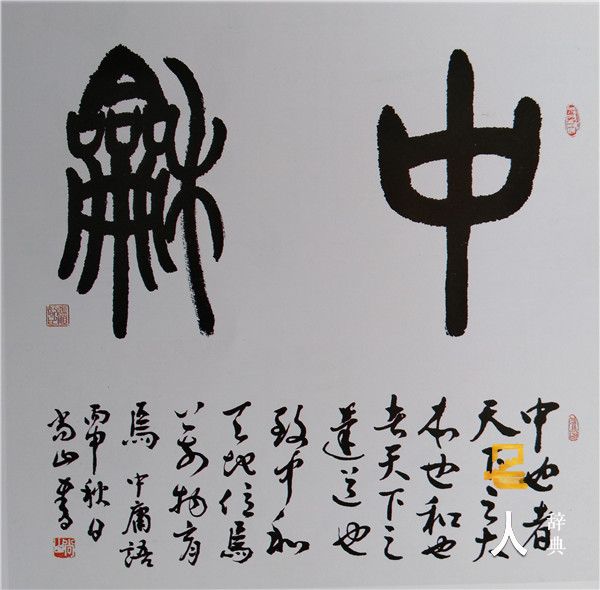 中龢
中也者
天下之大
本也和也
者天下之
達道也
致中和
天地位焉
萬物育
焉 中庸語
丙申秋日
尚山
人
辞典